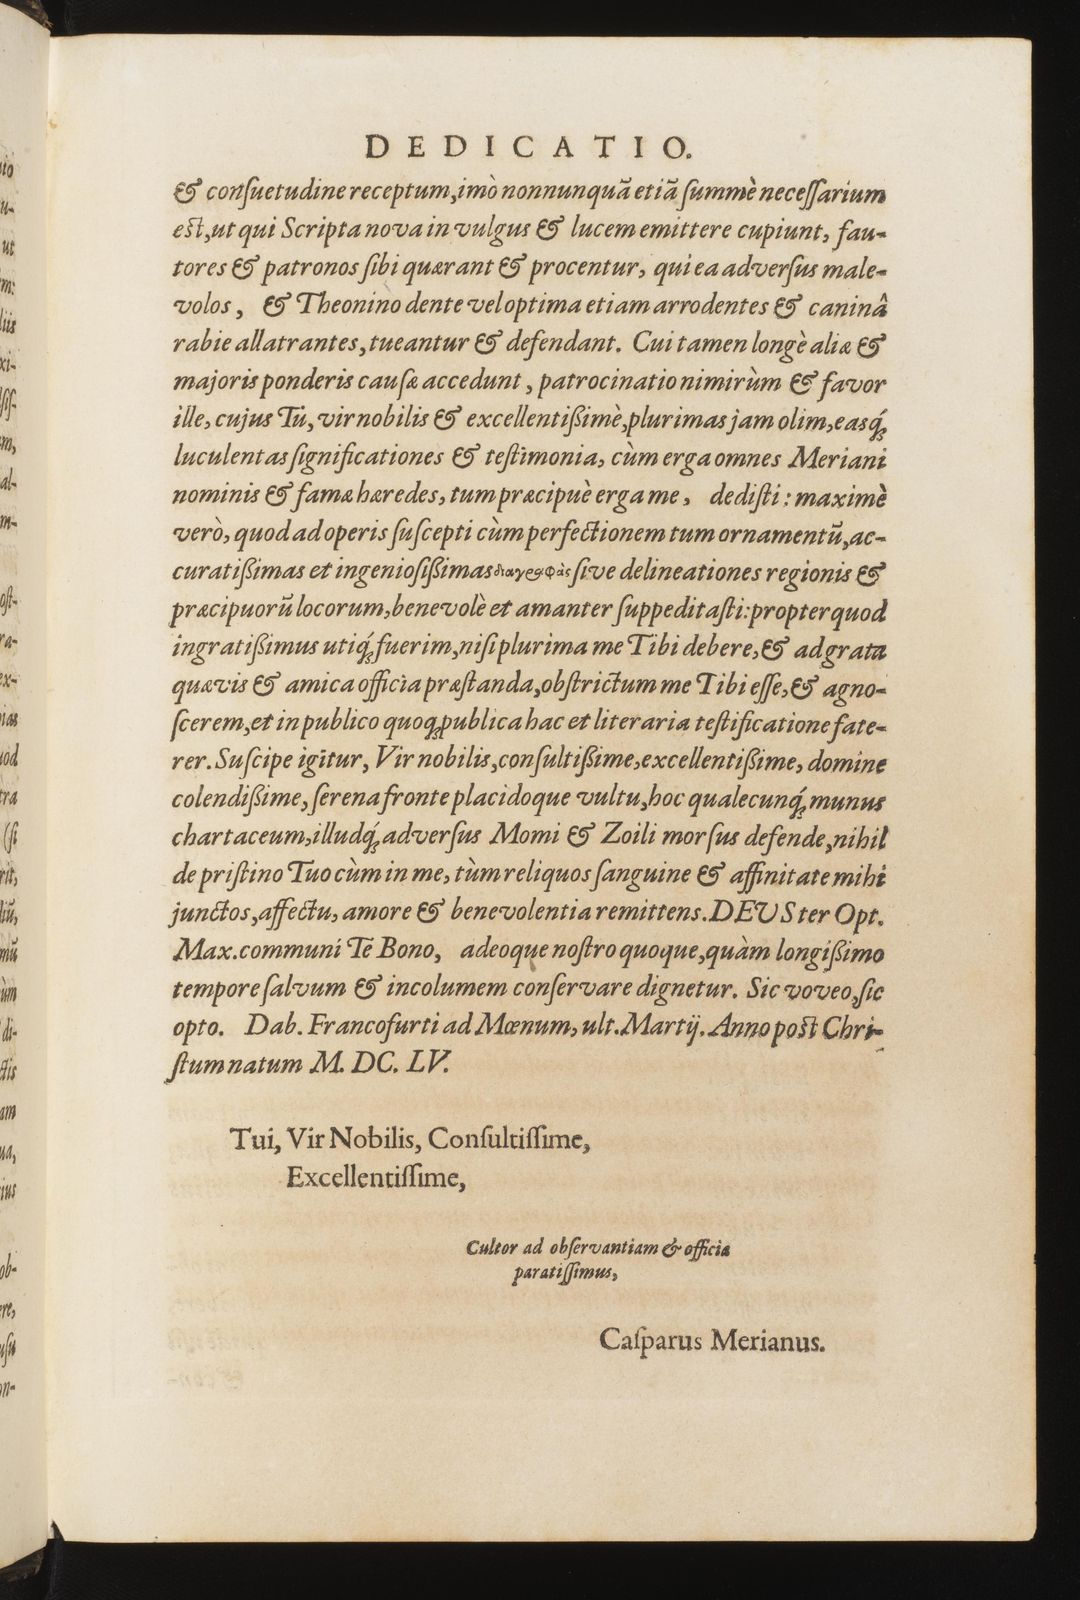 DEDICATIO.
& conſuetudine receptum, imò nonnunquã etiã ſummè neceſſarium
eſt, ut qui Scripta nova in vulgus & lucem emittere cupiunt, fau-
tores & patronos ſibi quærant & procentur, qui ea adverſus male-
volos, & Theonino dente vel optima etiam arrodentes & caninâ
rabie allatrantes, tueantur & defendant. Cui tamen longè aliæ &
majoris ponderis cauſæ accedunt, patrocinatio nimirùm & favor
ille, cujus Tu, vir nobilis & excellentißimè, plurimas jam olim, easq́;
luculentas ſignificationes & teſtimonia, cùm erga omnes Meriani
nominis & famæ hæredes, tum præcipuè erga me, dediſti: maximè
verò, quod ad operis ſuſcepti cùm perfectionem tum ornamentũ, ac-
curatißimas et ingenioſißimas διαγραφὰς ſive delineationes regionis &
præcipuorũ locorum, benevolè et amanter ſuppeditaſti: propter quod
ingratißimus utiq́; fuerim, niſi plurima me Tibi debere, & ad grata
quævis & amica officia præſtanda, obſtrictum me Tibi eſſe, & agno-
ſcerem, et in publico quoq; publica hac et literaria teſtificatione fate-
rer. Suſcipe igitur, Vir nobilis, conſultißime, excellentißime, domine
colendißime, ſerena fronte placidoque vultu, hoc qualecunq́; munus
chartaceum, illudq́; adverſus Momi & Zoili morſus defende, nihil
de priſtino Tuo cùm in me, tùm reliquos ſanguine & affinitate mihi
junctos, affectu, amore & benevolentia remittens. DEUS ter Opt.
Max. communi Te Bono, adeoque noſtro quoque, quàm longißimo
tempore ſalvum & incolumem conſervare dignetur. Sic voveo, ſic
opto. Dab. Francofurti ad Mœnum, ult. Martij. Anno poſt Chri-
ſtum natum M. DC. LV.
Tui, Vir Nobilis, Conſultiſſime,
Excellentiſſime,
Cultor ad obſervantiam & officia
paratiſſimus,
Caſparus Merianus.